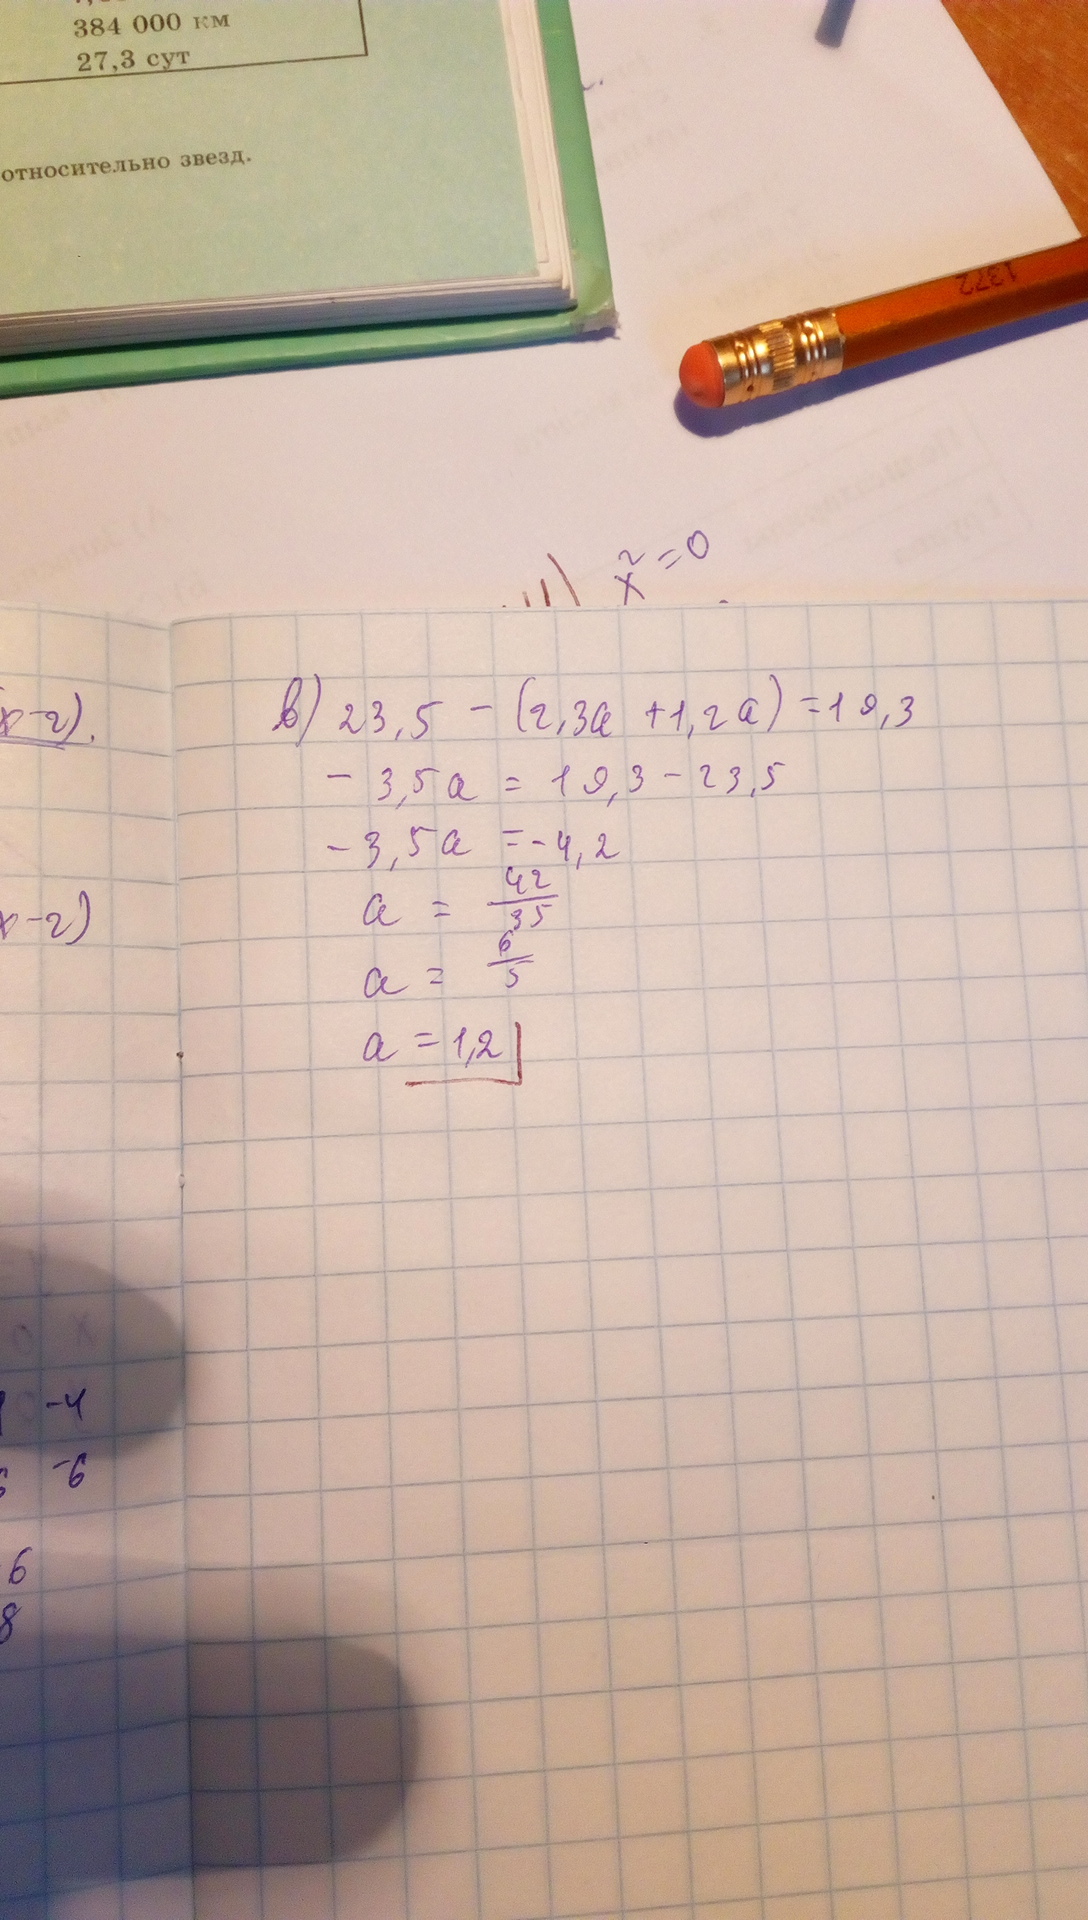 384 000 км
27,3 сут
относительно звезд.
1372
x² = 0
x-2).
x-2)
в) 23,5 - (2,3a + 1,2a) = 19,3
- 3,5a = 19,3 - 23,5
- 3,5a = -4,2
a = 42/35
a = 6/5
a = 1,2
-4
-6
6
8